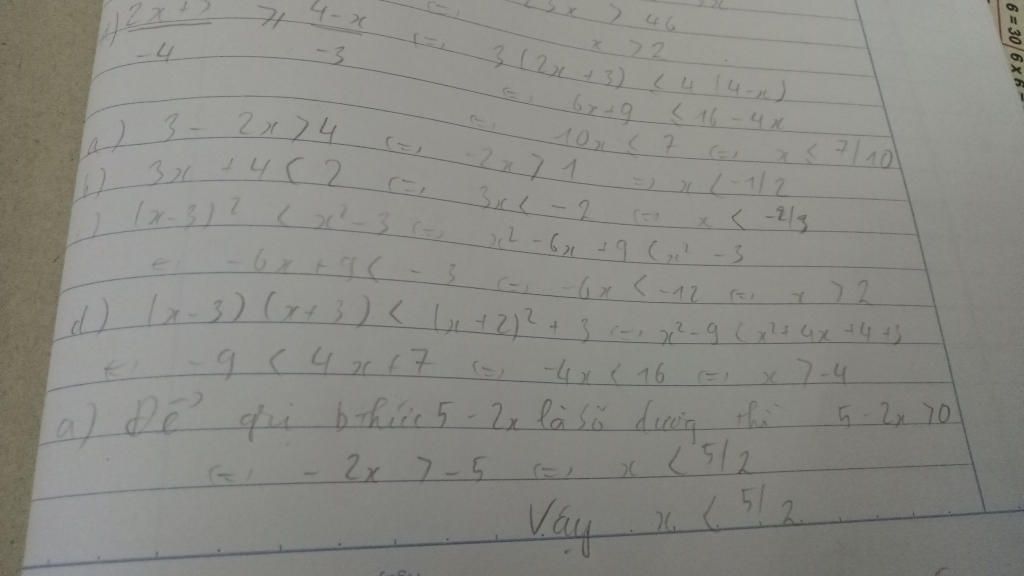 ⇔ 23x > 46
2x+3 ≥ 4-x ⇔ x > 2
-4 -3 3(2x+3) ≤ 4(4-x)
⇔ 6x+9 ≤ 16-4x
⇔ 10x ≤ 7 ⇔ x ≤ 7/10
a) 3 - 2x > 4 ⇔ -2x > 1 ⇔ x < -1/2
b) 3x + 4 < 2 ⇔ 3x < -2 ⇔ x < -2/3
) (x-3)² < x² - 3 ⇔ x² - 6x + 9 < x² - 3
⇔ -6x + 9 < -3 ⇔ -6x < -12 ⇔ x > 2
d) (x-3)(x+3) < (x+2)² + 3 ⇔ x² - 9 < x² + 4x + 4 + 3
⇔ -9 < 4x + 7 ⇔ -4x < 16 ⇔ x > -4
a) Để b thức 5 - 2x là số dương thì 5 - 2x > 0
⇔ - 2x > -5 ⇔ x < 5/2
Vậy x < 5/2
6 = 30
6 x 6 =